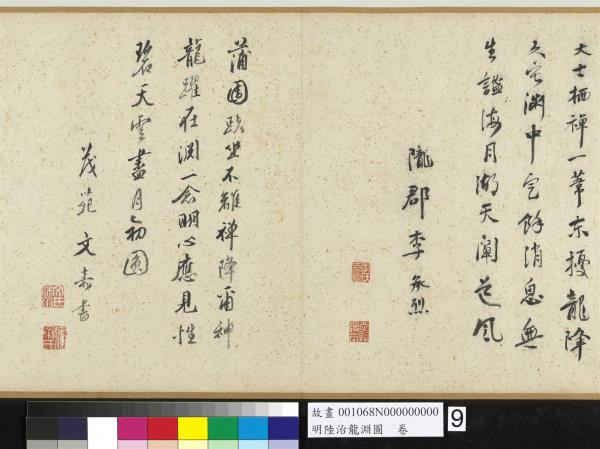 大士栖禪一葦東擾龍降
淵中定餘消息無
生謐海月湖天闊茫風
隴郡李承烈
蒲團趺坐不離禅降甭神
龍躍在淵一念明心應見性
碧天雲盡月初圓
茂苑文嘉書
故畫 001068N000000000
明陸治龍淵圖 卷
9